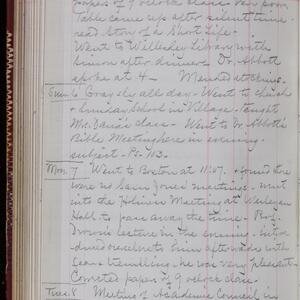 papers of 9 o'clock class. Very poor.
Table came up after silent time.
read Story of a Short Life.
Went to Library with
after dinner. Dr. Abbott
spoke at 4 —
Sun. 6 Gray sky all day. Went to church
& Sunday School in Village. taught
Mrs. class — Went to Dr. Abbott's
Bible Meeting here in evening.
subject — Ps. 103.
Mon. 7 Went to Boston at 11:07. & found there
were no Sam Jones meetings. went
into the Holiness Meeting at Wesleyan
Hall to pass away the time. Prof.
lecture in the evening.
him afterwards with
fear & trembling — he was very pleasant.
Corrected papers of 9 o'clock class.
Tues. 8 Meeting of Academic Council in